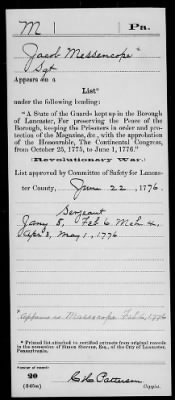 M | Pa.
Jacob Messencope
Sgt
Appears on a
List*
under the following heading:
"A State of the Guards kept up in the Borough
of Lancaster, For preserving the Peace of the
Borough, keeping the Prisoners in order and pro-
tection of the Magazine, &c., with the approbation
of the Honorable, The Continental Congress,
from October 25, 1775, to June 1, 1776."
(Revolutionary War.)
List approved by Committee of Safety for Lancas-
ter County, June 22, 1776.
Sergeant
Jany 5, Feb 6, Mch 4,
Apr 3, May 1, 1776
Appears as Messencope Feb 6, 1776
* Printed list attached to certified extracts from original records
in the possession of Simon Stevens, Esq., of the City of Lancaster,
Pennsylvania.
Number of record:
20
(346a)
Patterson
Copyist.